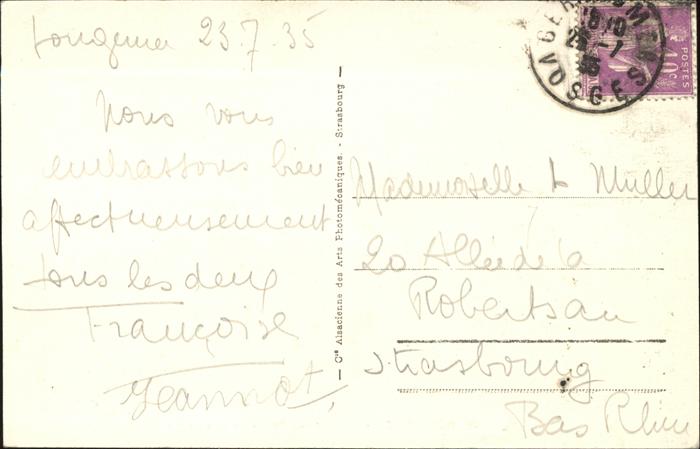 Longemer 23.7.35
Nous vous
embrassons bien
affectueusement
tous les deux
Françoise
Jeannot
— Cie Alsacienne des Arts Photomécaniques. - Strasbourg —
GERARDMER
VOSGES
18 10
35
POSTES
10c
Mademoiselle L Muller
20 Allée de la
Robertsau
Strasbourg
Bas Rhin